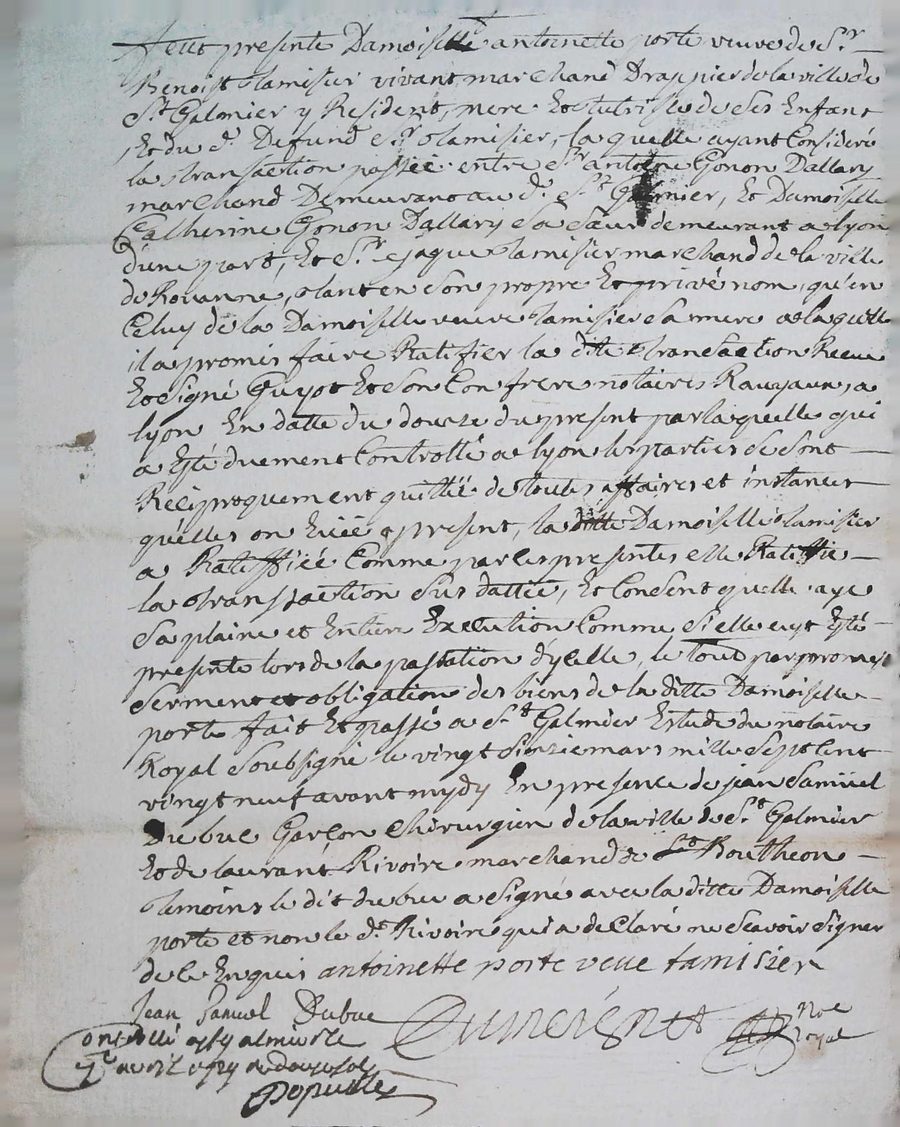 A eut presente Damoiselle antoinette porte veuve de Sr
Benoist tamisier vivant marchand Drappier de la ville de
St Galmier y Resident, mere Et tutrisse de Ses Enfant
Et du d. Defund Sr tamisier, la quelle ayant Consideré
la transaction passée entre Sr antoine Gonon Dallary
marchand Demeurant au d. St Galmier, Et Damoiselle
Catherine Gonon Dallary Sa Sœur demeurant a lyon
d'une part, Et Sr jaque tamisier marchand de la ville
de Rouanne, tant en Son propre Et privé nom, qu'en
Celuy de la Damoiselle veuve tamisier Sa mere a laquelle
il a promis faire Ratifier la dite transaction Receue
Et Signé Guyot Et Son Confrere notaires Royaux, a
lyon En datte du douze du present par laquelle qui
a Esté duement Controllé a lyon les parties Se Sont
Reciproquement quitté de toutes affaires et instances
qu'elles on Eüée a present, la ditte Damoiselle tamisier
a Ratiffiéé Comme par les presentes elle Ratiffie
la transaction Sus dattée, Et Consent quelle aye
Sa plaine et Entiere Execution Comme Si elle eut Esté
presente lors de la passation d'ycelle, le tout par promes
Serment et obligation des biens de la ditte Damoiselle
porte fait Et passé a St Galmier Estude du notaire
Royal Soubsigné le vingt mars mille Sept Cent
vingt neuf avant mydy En presence de jean Samuel
Dubuc Garçon Chirurgien de la ville de St Galmier
Et de laurant Rivoire marchand de Boutheon
temoins le dit dubuc a Signé avec la ditte Damoiselle
porte et non le d. Rivoire qui a declaré ne Scavoir Signer
de ce Enquis antoinette porte veue tamisier
Jean Samuel Dubuc
Nre
Royal
Controllé a St galmier le
avril 1729